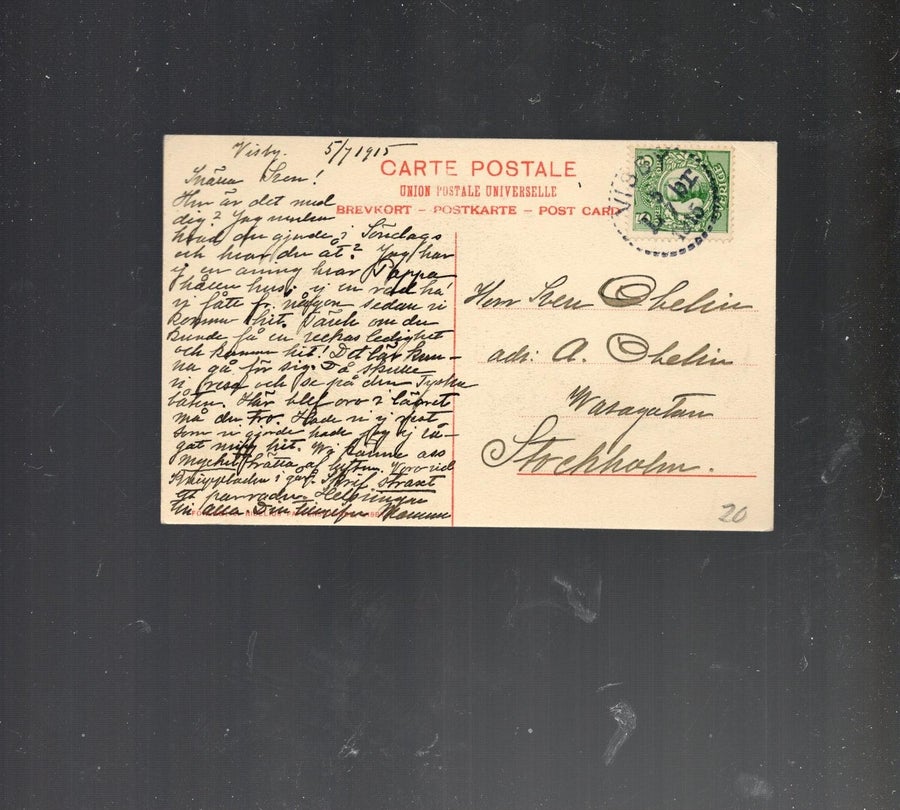 Visby. 5/7 1915
Snälla Sven!
Hur är det med
dig? Jag undrar
hvad du gjorde i Söndags
och hvar du åt? Jag har
ej en aning hvar Pappa
håller hus; ej en rad ha
vi fått fr. någon sedan vi
kommo hit. Tänk om du
kunde få en veckas ledighet
och komma hit! Det lär kun-
na gå för sig. Då skulle
vi resa och se på den Tyska
båten. Här blef oro i lägret
må du tro. Hade vi ej rest
som vi gjorde hade jag ej vå-
gat mig hit. Vi känna oss
mycket trötta af luften. Voro vid
Snäppbacken i går. Skrif strax
ett par rader. Helsningar
fr. alla Din tillgifna Mamma
CARTE POSTALE
UNION POSTALE UNIVERSELLE
BREVKORT – POSTKARTE – POST CARD
VISBY
1915
SVERIGE
Herr Sven Ohelin
adr: A. Ohelin
Wasagatan
Stockholm.
20